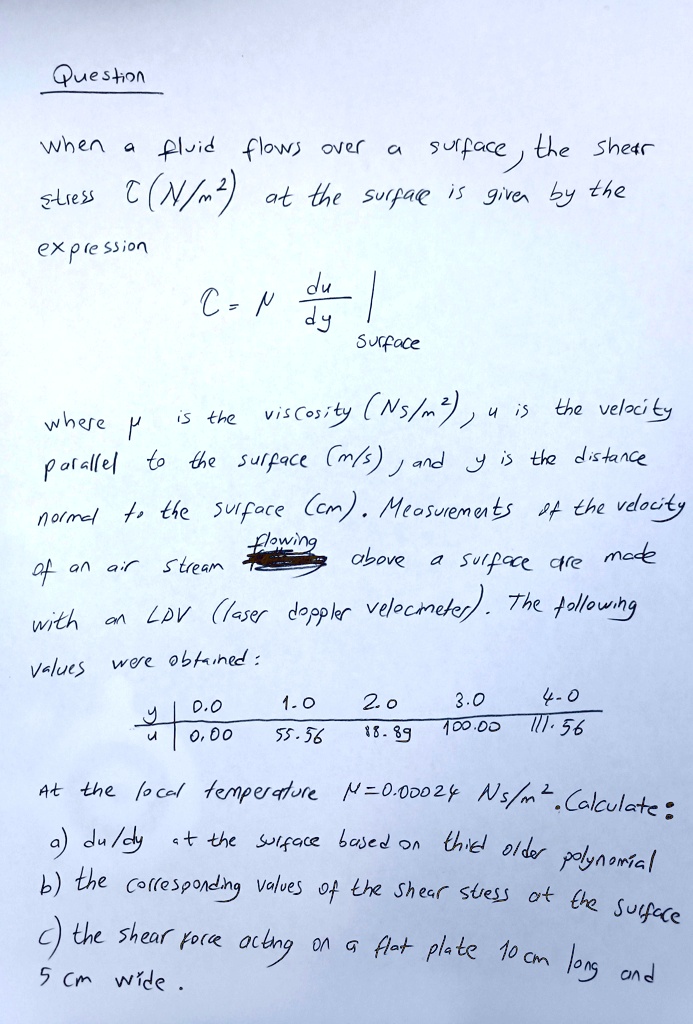 Question
when a fluid flows over a surface, the shear
stress τ (N/m²) at the surface is given by the
expression
τ = μ du/dy |surface
where μ is the viscosity (Ns/m²), u is the velocity
parallel to the surface (m/s), and y is the distance
normal to the surface (cm). Measurements of the velocity
of an air stream flowing above a surface are made
with an LDV (laser doppler velocimeter). The following
values were obtained:
y | 0.0 1.0 2.0 3.0 4.0
u | 0.00 55.56 88.89 100.00 111.56
At the local temperature μ=0.00024 Ns/m². Calculate:
a) du/dy at the surface based on third older polynomial
b) the corresponding values of the shear stress at the surface
c) the shear force acting on a flat plate 10 cm long and
5 cm wide.